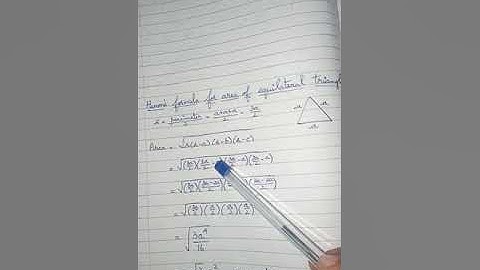 Heron's formula for area of equilateral triangl
s = perimeter/2 = a+a+a/2 = 3a/2
a a
a
Area = √s(s-a)(s-b)(s-c)
= √(3a/2)(3a/2 - a)(3a/2 - a)(3a/2 - a)
= √(3a/2)(3a-2a/2) (3a-2a/2)
= √(3a/2)(a/2)(a/2)(a/2)
= √3a⁴/16